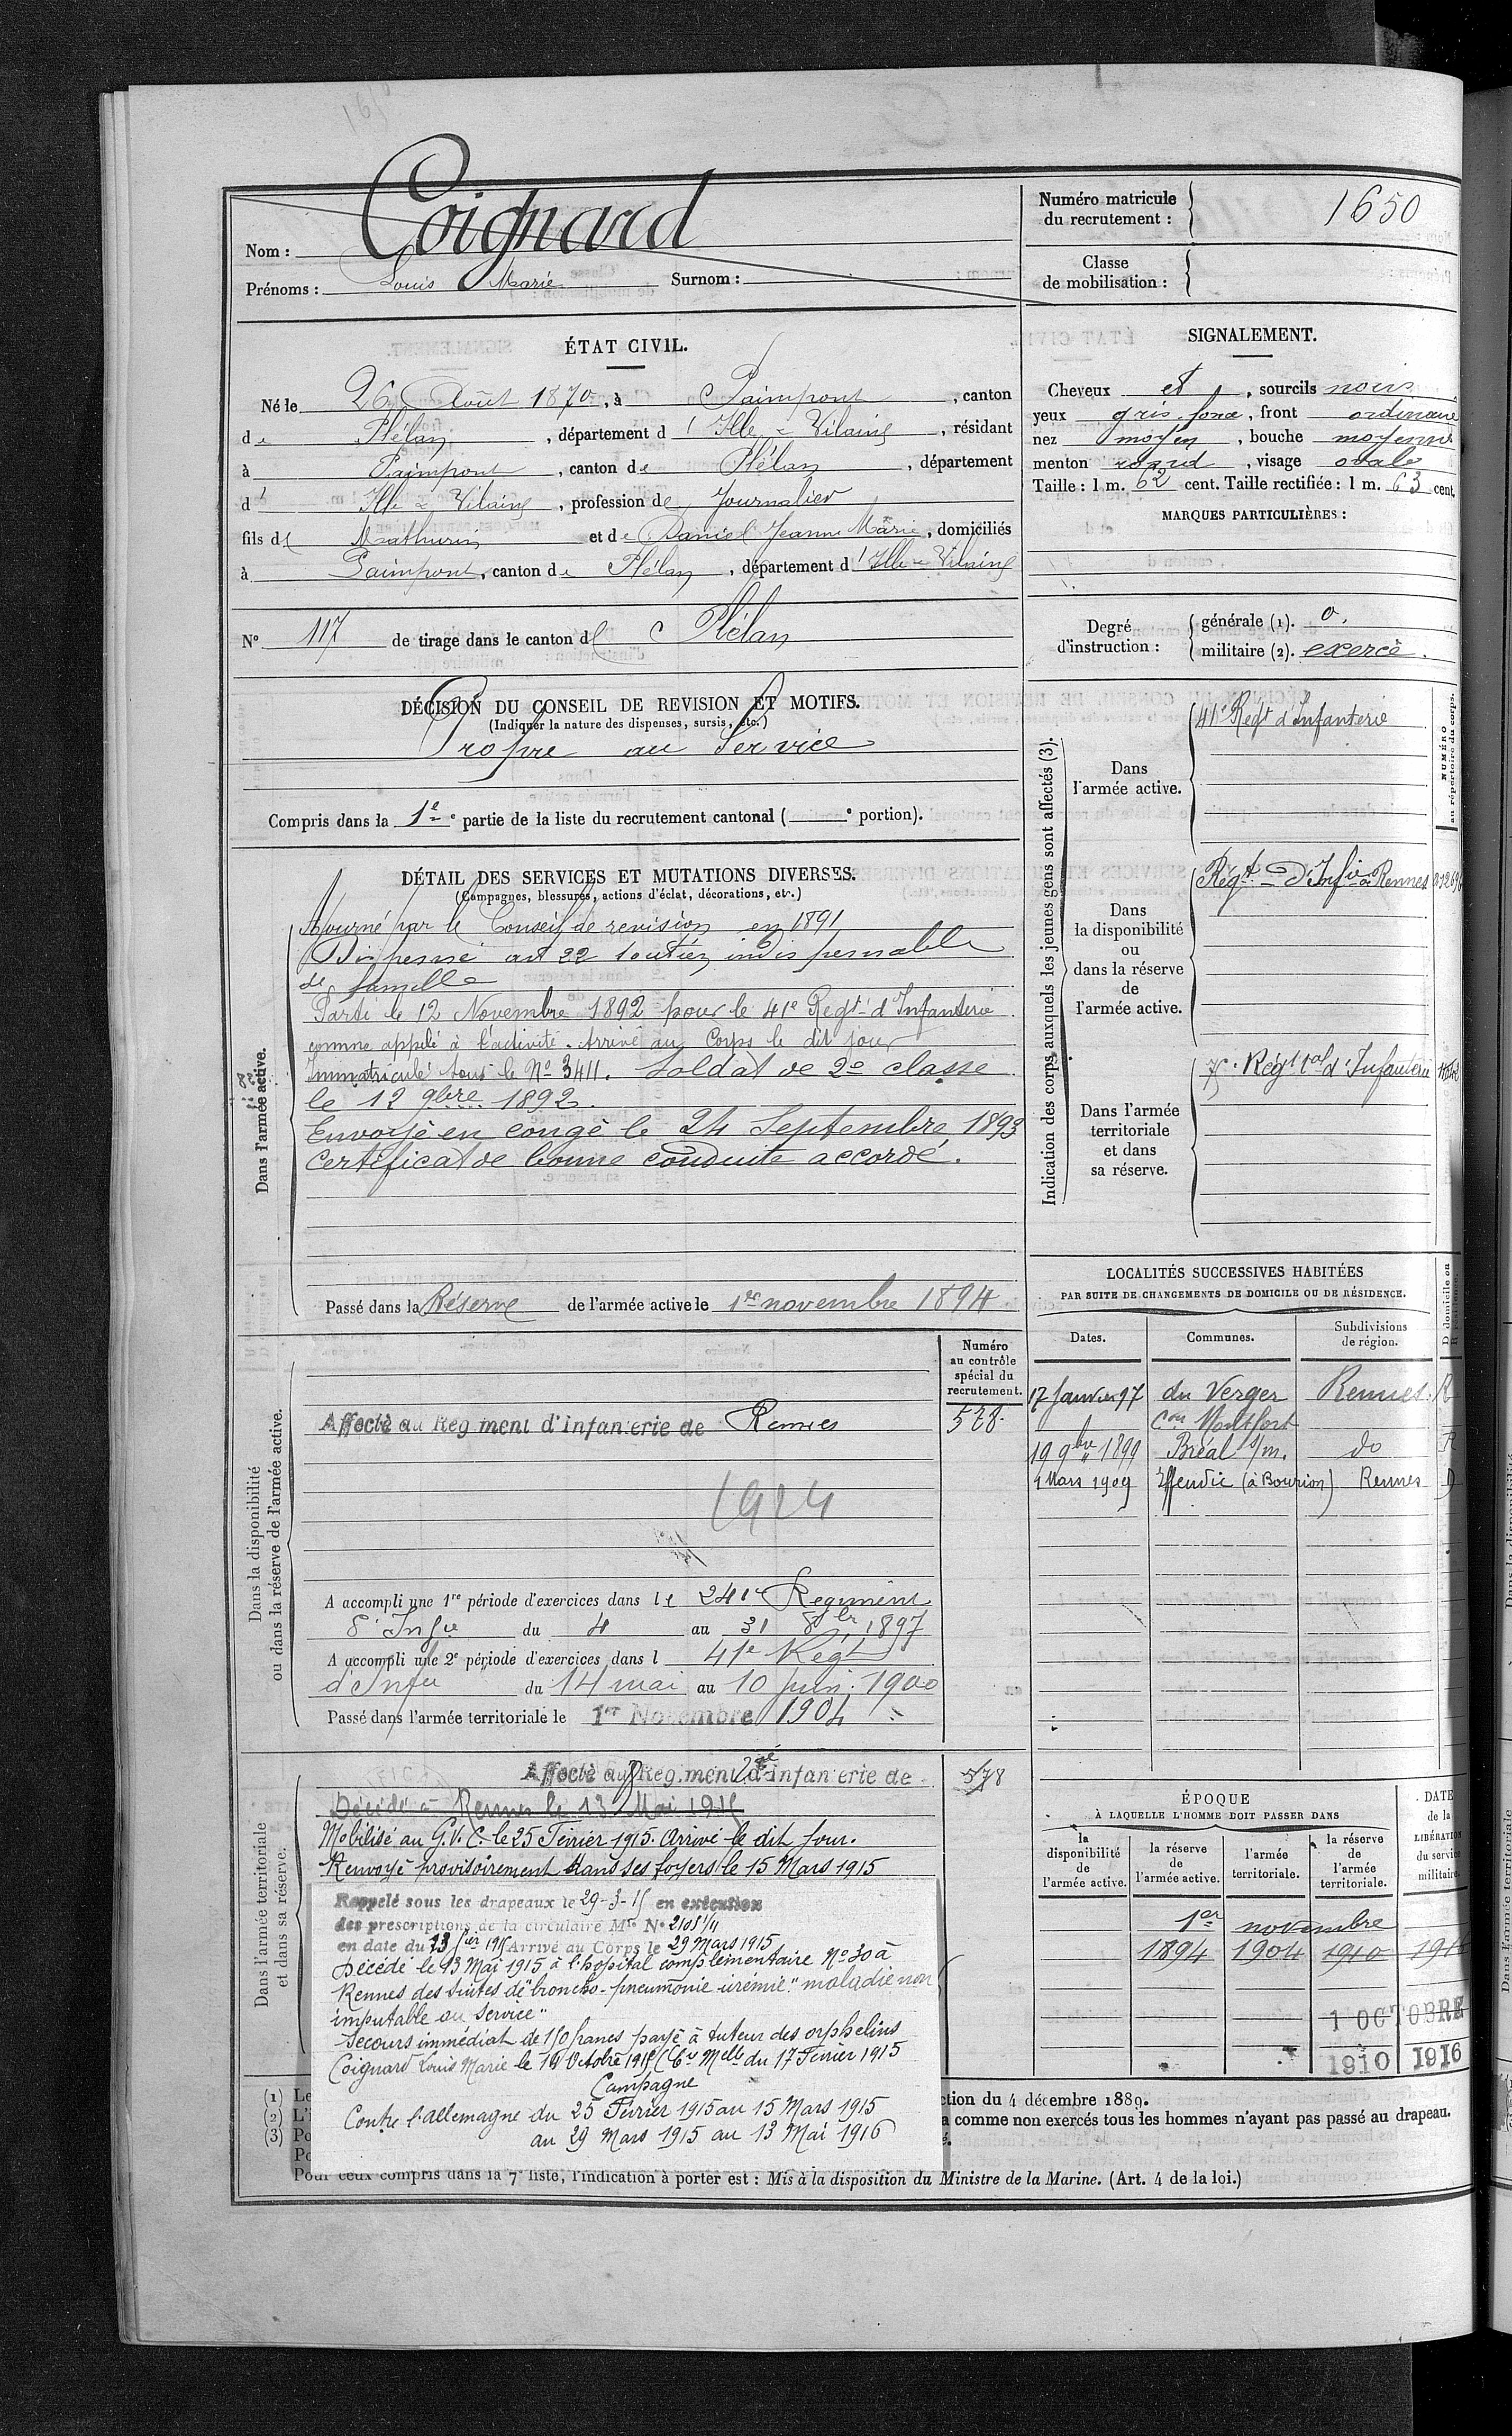 Numéro matricule du recrutement : 1650
Nom : Coignard
Classe de mobilisation :
Prénoms : Louis Marie Surnom :
ÉTAT CIVIL.
Né le 26 Août 1870, à Paimpont, canton
de Plélan, département d'Ille & Vilaine, résidant
à Paimpont, canton de Plélan, département
d'Ille & Vilaine, profession de Journalier
fils de Mathurin et de Daniel Jeanne Marie, domiciliés
à Paimpont, canton de Plélan, département d'Ille & Vilaine
N° 117 de tirage dans le canton de Plélan
DÉCISION DU CONSEIL DE REVISION ET MOTIFS.
(Indiquer la nature des dispenses, sursis, etc.)
Propre au Service
Compris dans la 1e partie de la liste du recrutement cantonal ( e portion).
SIGNALEMENT.
Cheveux et, sourcils noirs
yeux gris foncé, front ordinaire
nez moyen, bouche moyenne
menton rond, visage ovale
Taille : 1 m. 62 cent. Taille rectifiée : 1 m. 63 cent.
MARQUES PARTICULIÈRES :
Degré d'instruction :
générale (1). 0.
militaire (2). exercé.
DÉTAIL DES SERVICES ET MUTATIONS DIVERSES.
(Campagnes, blessures, actions d'éclat, décorations, etc.)
Dans l'armée active.
Ajourné par le Conseil de revision en 1891
Dispensé art 22 soutien indispensable
de famille
Parti le 12 Novembre 1892 pour le 41e Regt d'Infanterie
comme appelé à l'activité. Arrivé au Corps le dit jour
Immatriculé sous le No 3411. Soldat de 2e classe
le 12 9bre 1892.
Envoyé en congé le 24 Septembre 1893
Certificat de bonne conduite accordé.
Passé dans la Réserve de l'armée active le 1er novembre 1894
Indication des corps auxquels les jeunes gens sont affectés (3).
NUMÉRO au répertoire du corps.
Dans l'armée active.
41e Régt d'Infanterie
Dans la disponibilité ou dans la réserve de l'armée active.
Régt d'Infie à Rennes
Dans l'armée territoriale et dans sa réserve.
Régt tal d'Infanterie
LOCALITÉS SUCCESSIVES HABITÉES
PAR SUITE DE CHANGEMENTS DE DOMICILE OU DE RÉSIDENCE.
Dates. Communes. Subdivisions de région.
17 Janvier 97 du Verger Rennes. R
Con Montfort
19 9bre 1899 Bréal s/m. do R
4 Mars 1909 Iffendic (à Bourion) Rennes D
Dans la disponibilité ou dans la réserve de l'armée active.
Numéro au contrôle spécial du recrutement.
Affecté au Régiment d'Infanterie de Rennes 578
1914
A accompli une 1re période d'exercices dans le 241e Regiment
d'Infie du 4 au 31 8bre 1897
A accompli une 2e période d'exercices dans l 41e Régt
d'Infie du 14 mai au 10 juin 1900
Passé dans l'armée territoriale le 1er Novembre 1904
Dans l'armée territoriale et dans sa réserve.
Affecté au Régiment d'infanterie de 578
Décédé à Rennes le 13 Mai 1915
Mobilisé au G.V.C. le 25 Février 1915. Arrivé le dit jour.
Renvoyé provisoirement dans ses foyers le 15 Mars 1915
Rappelé sous les drapeaux le 29-3-15 en exécution
des prescriptions de la circulaire Mlle N°
en date du 23 fier 1915 Arrivé au Corps le 29 Mars 1915
Décédé le 13 Mai 1915 à l'hôpital complémentaire No 30 à
Rennes des suites de "broncho-pneumonie urémie" "maladie non
imputable au service"
Secours immédiat de 150 francs payé à tuteur des orphelins
Coignard Louis Marie le 19 Octobre 1915 (Cre Melle du 17 Février 1915
Campagne
Contre l'allemagne du 25 Février 1915 au 15 Mars 1915
au 29 Mars 1915 au 13 Mai 1916
ÉPOQUE
À LAQUELLE L'HOMME DOIT PASSER DANS
la disponibilité de l'armée active.
la réserve de l'armée active.
l'armée territoriale.
la réserve de l'armée territoriale.
DATE de la LIBÉRATION du service militaire.
1er novembre
1894 1904 1910 1916
1 OCTOBRE
1910 1916
(1) Le
ction du 4 décembre 1889.
(2) L'
a comme non exercés tous les hommes n'ayant pas passé au drapeau.
(3) Po
Po
Pour ceux compris dans la 7e liste, l'indication à porter est : Mis à la disposition du Ministre de la Marine. (Art. 4 de la loi.)